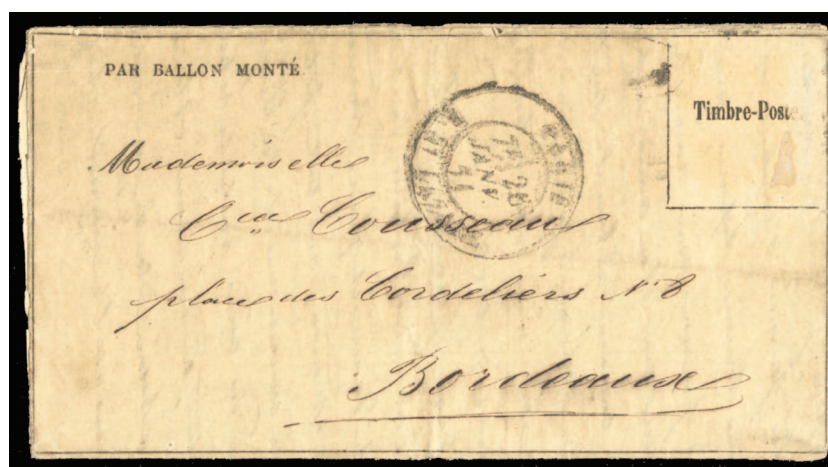 PAR BALLON MONTÉ.
Timbre-Poste
PARIS
JANV.
71
Mademoiselle
Cousseau
place des Cordeliers N° 8
Bordeaux